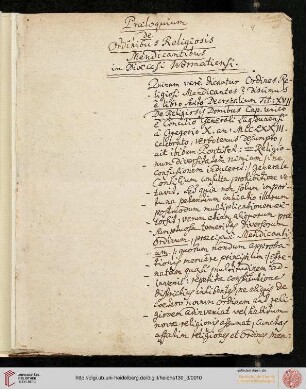 Præloquium
de
Ordinibus Religiosis
Mendicantibus
in Diœcesi Wormatiensi.
Quinam verè dicantur Ordines Re-
ligiosi Mendicantes?
è libro Decretalium Tit: XVII
De Religiosis Domibus Cap. unico
è Concilio Generali Lugdunensi
à Gregorio X. an: MCCLXXIII
celebrato,
ait ibidem Pontifex: = Religio-
num diversitatem nimiam, ne
confusionem induceret, Generale
Concilium consultâ prohibitione ve-
tavit. Sed quia non solum impor-
tuna petentium inhiatio illarum
postmodum multiplicationem ex-
torsit, verum etiam aliquorum præ-
sumptuosa temeritas diversorum
Ordinum, præcipuè Mendicanti-
um, quorum nondum approba-
tionis meruere principium, effre-
natam quasi multitudinem ad-
invenit: repetita constitutione
districtius inhibentes, ne aliquis de
cætero novum Ordinem aut reli-
gionem adinveniat vel habitum
novæ religionis assumat, Cunctas
affatim religiones et Ordines Men-
http://digi.ub.uni-heidelberg.de/diglit/heidhs130_3/0010